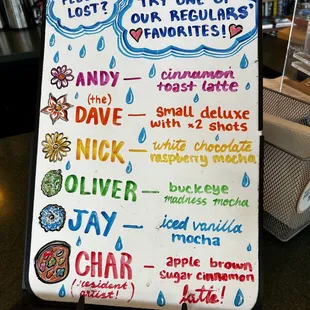 LOST?
TRY ONE OF
OUR REGULARS'
FAVORITES!
ANDY — cinnamon
toast latte
(the)
DAVE — small deluxe
with x2 shots
NICK — white chocolate
raspberry mocha
OLIVER — buckeye
madness mocha
JAY — iced vanilla
mocha
CHAR — apple brown
sugar cinnamon
(resident
artist!) latte!